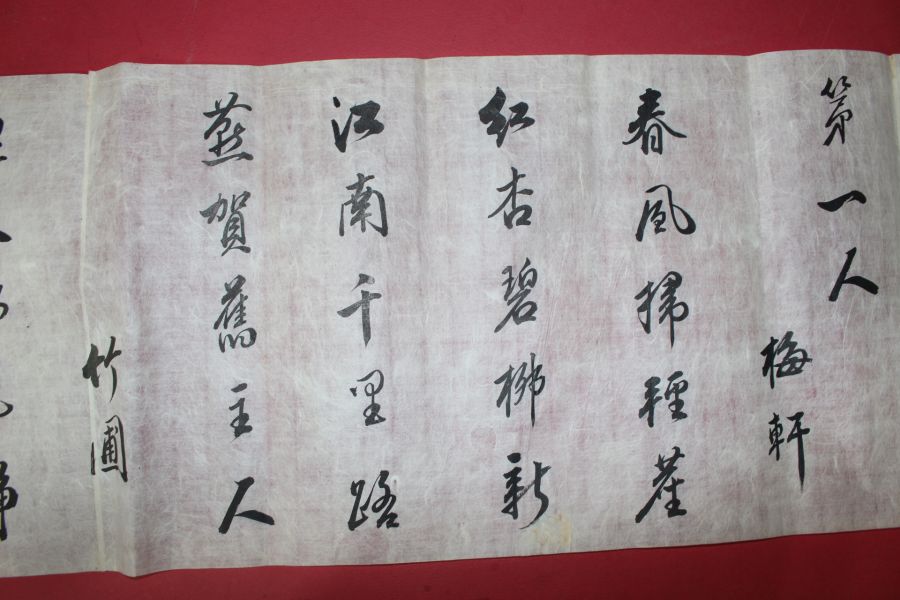 第一人
梅軒
春風掃輕塵
紅杏碧柳新
江南千里路
燕賀舊主人
竹圃